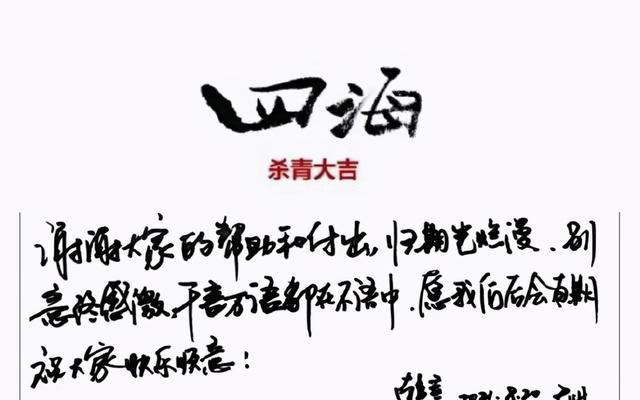 四海
杀青大吉
谢谢大家的帮助和付出,归期岂烂漫、别
意终感激,千言万语都在不语中.愿我们后会有期
祝大家快乐顺意!